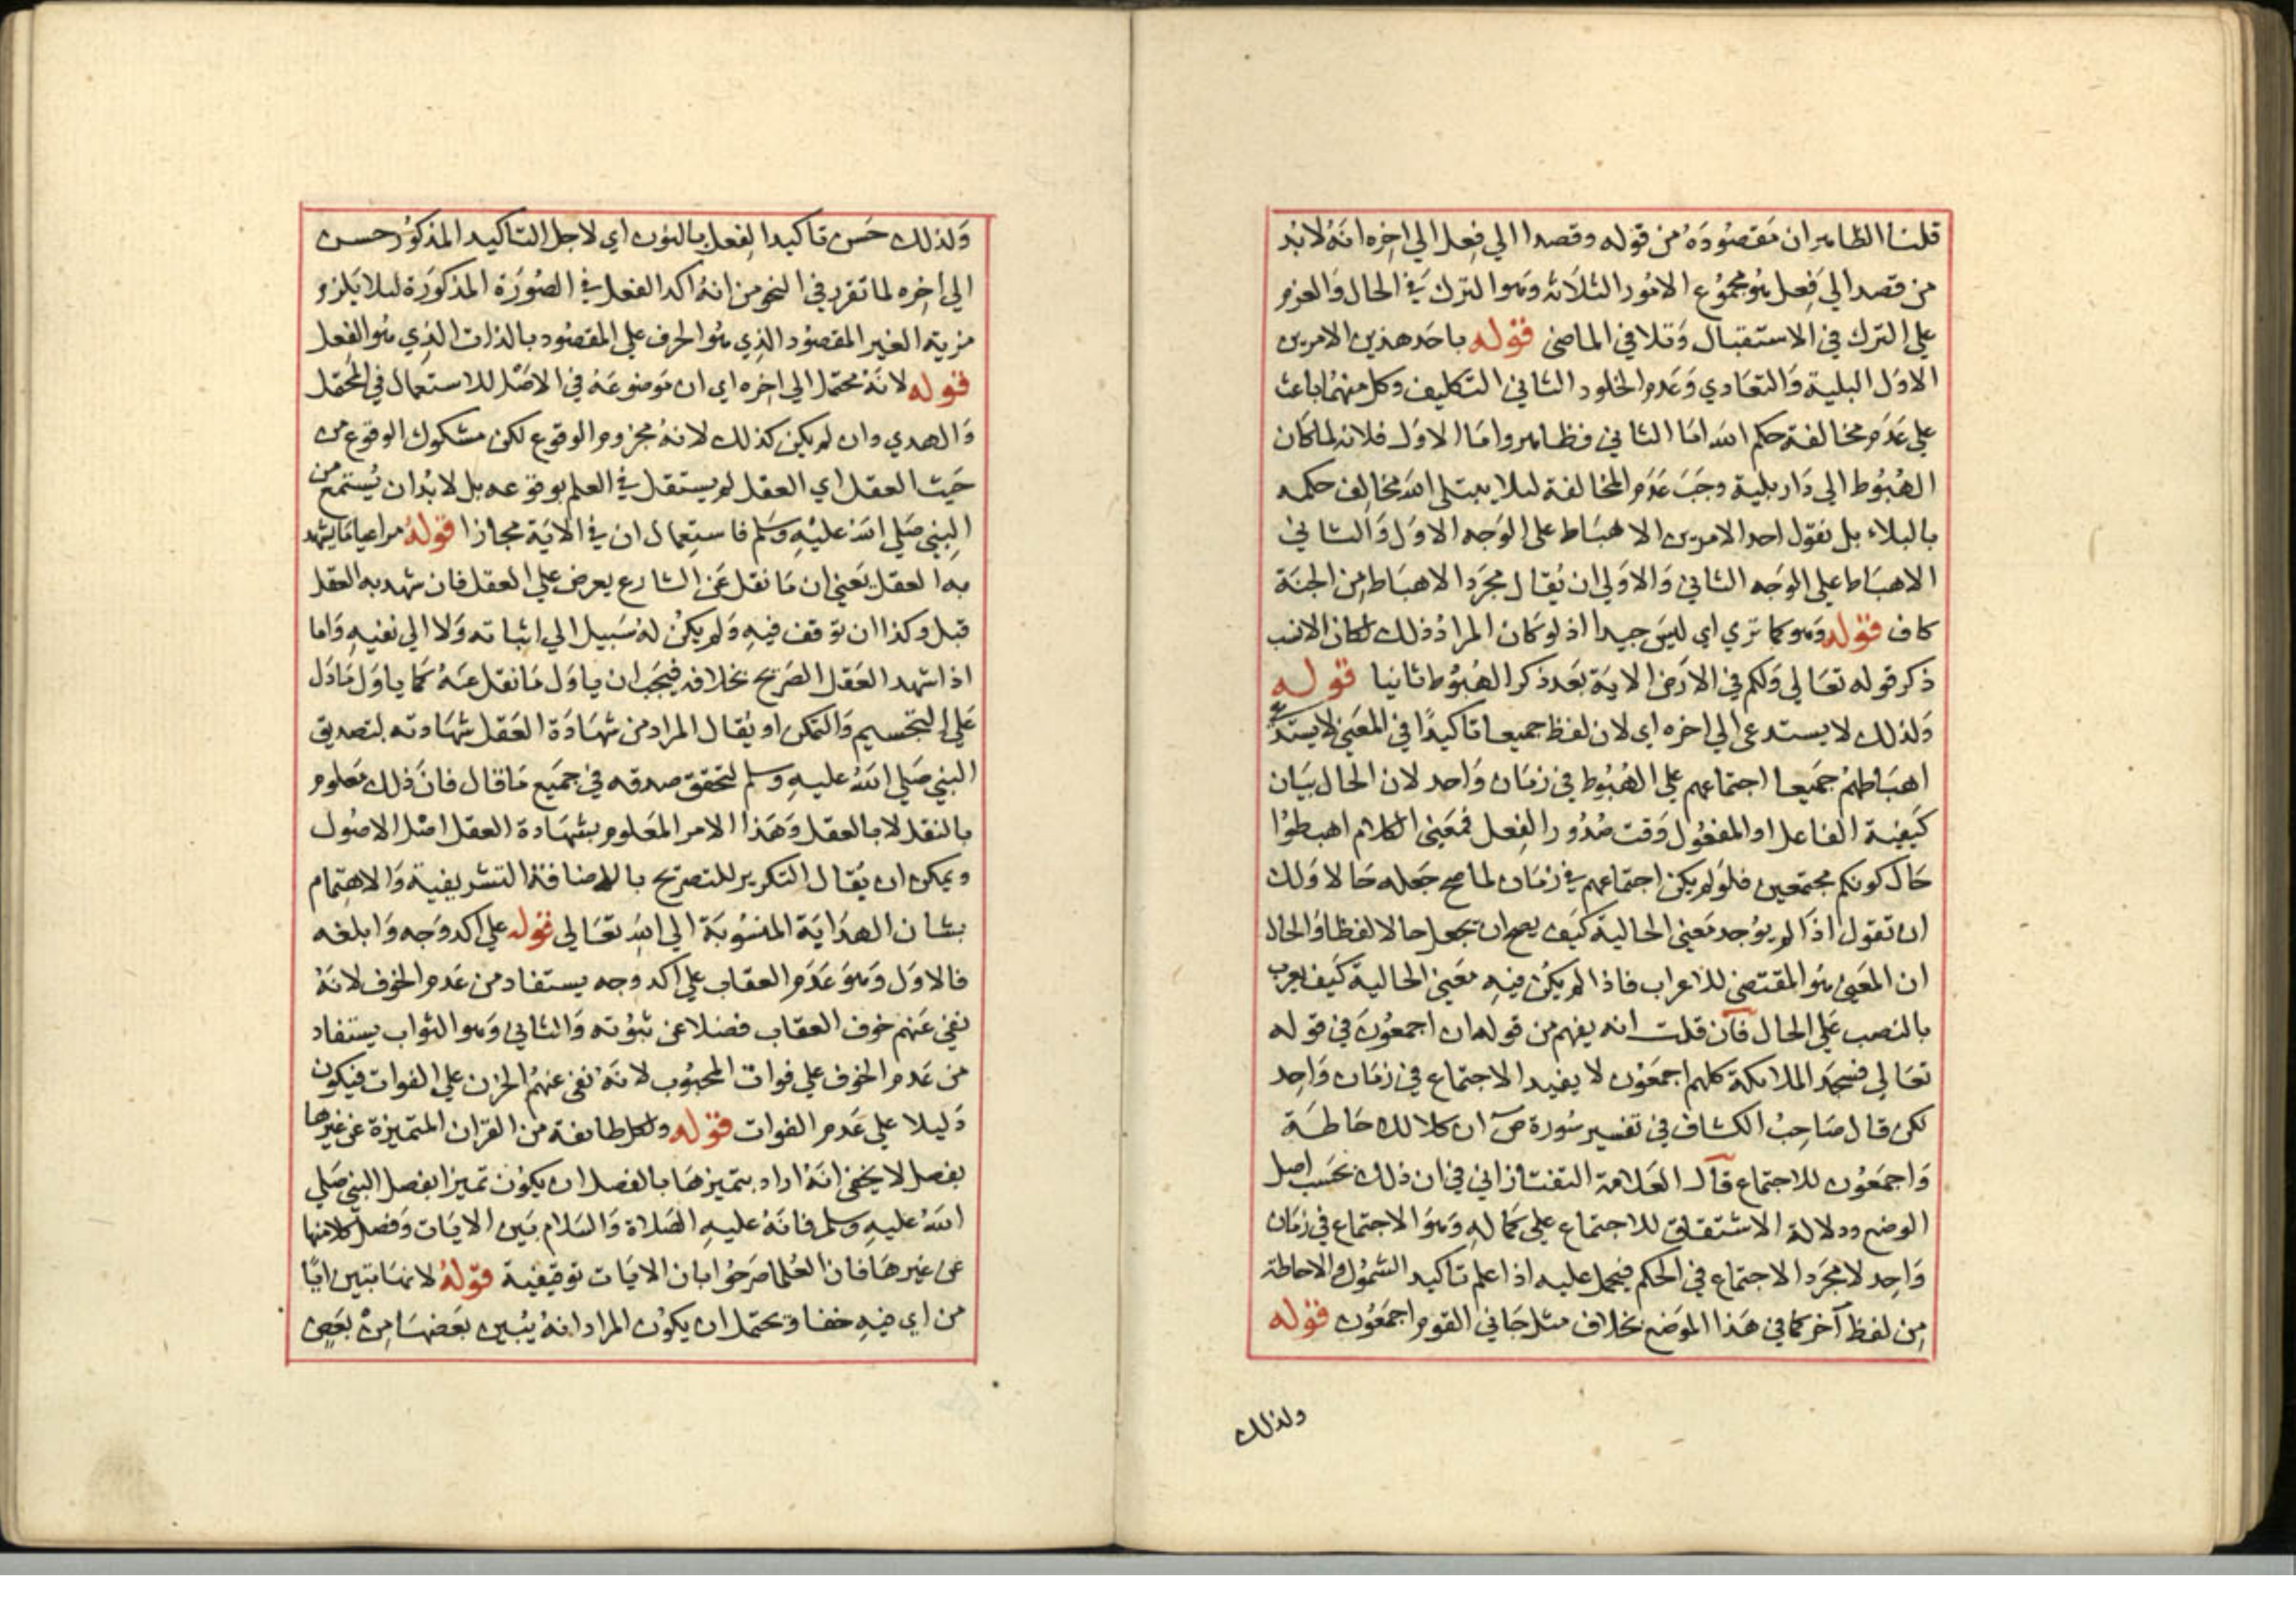 قلنا الظاهر ان مقصوده من قوله وقصدا الي فعل الي اخره انه لا بد
من قصد الي فعل هو مجموع الامور الثلاثة وهو الترك في الحال والعزم
علي الترك في الاستقبال وتلافي الماضي قوله باحد هذين الامرين
الاول البلية والتعادي وعدم الخلود الثاني التكليف وكل منهما باعث
علي عدم مخالفة حكم الله اما الثاني فظاهر واما الاول فلانه لما كان
الهبوط الي دار بلية وجب عدم المخالفة ليلا يبتلي الله مخالف حكمه
بالبلاء بل نقول احد الامرين الاهباط على الوجه الاول والثاني
الاهباط علي الوجه الثاني والاولي ان يقال مجرد الاهباط من الجنة
كاف قوله وهو كما تري اي ليس جيدا اذ لو كان المراد ذلك لكان الانسب
ذكر قوله تعالي ولكم في الارض الاية بعد ذكر الهبوط ثانيا قوله
ولذلك لا يستدعي الي اخره اي لان لفظ جميعا تاكيدا في المعني لا يستدعي
اهباطهم جميعا اجتماعهم علي الهبوط في زمان واحد لان الحال بيان
كيفية الفاعل او المفعول وقت صدور الفعل فمعني الكلام اهبطوا
حال كونكم مجتمعين فلو لم يكن اجتماعهم في زمان لما صح جعله حالا ولك
ان تقول اذا لم يوجد معني الحالية كيف يصح ان تجعل حالا لفظا والحال
ان المعني هو المقتضي للاعراب فاذا لم يكن فيه معني الحالية كيف يعرب
بالنصب علي الحال فان قلت انه يفهم من قوله ان اجمعون في قوله
تعالي فسجد الملائكة كلهم اجمعون لا يفيد الاجتماع في زمان واحد
لكن قال صاحب الكشاف في تفسير سورة ص ان كلا للاحاطة
واجمعون للاجتماع قال العلامة التفتازاني في ان ذلك بحسب اصل
الوضع ودلالة الاشتقاق للاجتماع علي كماله وهو الاجتماع في زمان
واحد لا مجرد الاجتماع في الحكم فيحمل عليه اذا علم تاكيد الشمول والاحاطة
من لفظ آخر كما في هذا الموضع بخلاف مثل جاني القوم اجمعون قوله
ولذلك
ولذلك حسن تاكيد الفعل بالنون اي لاجل التاكيد المذكور حسن
الي اخره لما تقرر في النحو من انه اكد الفعل في الصورة المذكورة ليلا يلزم
مزية الغير المقصود الذي هو الحرف علي المقصود بالذات الذي هو الفعل
قوله لانه محتمل الي اخره اي ان موضوعة في الاصل للاستعمال في المحتمل
والهدي وان لم يكن كذلك لانه مجزوم الوقوع لكن مشكوك الوقوع من
حيث العقل اي العقل لم يستقل في العلم بوقوعه بل لا بد ان يستمع من
النبي صلي الله عليه وسلم فاستعمال ان في الاية مجازا قوله مراعيا ما يشهد
به العقل يعني ان ما نقل عن الشارع يعرض علي العقل فان شهد به العقل
قبل وكذا ان توقف فيه ولم يكن له سبيل الي اثباته ولا الي نفيه واما
اذا شهد العقل الصريح بخلافه فيجب ان ياول ما نقل عنه كما ياول ما دل
علي التجسيم والتمكن او يقال المراد من شهادة العقل شهادته لتصديق
النبي صلي الله عليه وسلم لتحقق صدقه في جميع ما قال فان ذلك معلوم
بالنقل لا بالعقل وهذا الامر المعلوم بشهادة العقل اصل الاصول
ويمكن ان يقال التكرير للتصريح بالاضافة التشريفية والاهتمام
بشان الهداية المنسوبة الي الله تعالي قوله علي اكد وجه وابلغه
فالاول وهو عدم العقاب علي اكد وجه يستفاد من عدم الخوف لانه
نفي عنهم خوف العقاب فضلا عن ثبوته والثاني وهو الثواب يستفاد
من عدم الخوف علي فوات المحبوب لانه نفي عنهم الحزن علي الفوات فيكون
دليلا علي عدم الفوات قوله ولكل طائفة من القران المتميزة عن غيرها
بفصل لا يخفي انه اراد بتميزها بالفصل ان يكون تميزا بفصل النبي صلي
الله عليه وسلم فانه عليه الصلاة والسلام بين الايات وفصل كلا منها
عن غيرها فان العلما صرحوا بان الايات توقيفية قوله لانها تبين ايا
من اي فيه خفا وتحتمل ان يكون المراد انه يبين بعضها من بعض